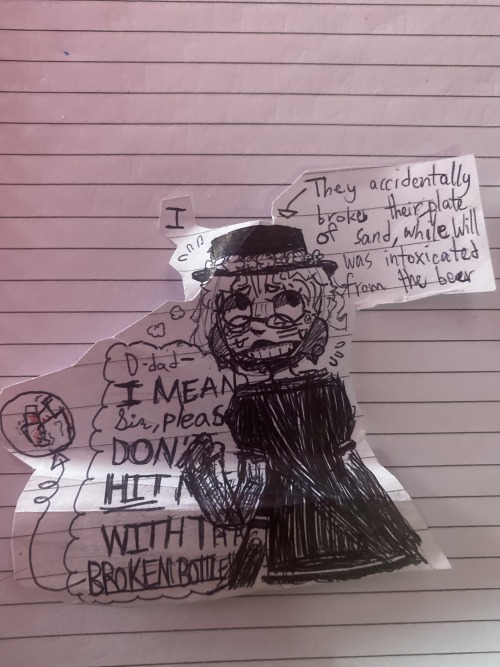 I
They accidentally
broke their plate
of sand, while Will
was intoxicated
from the beer
D-dad-
I MEAN
Sir, pleas
DON'T
HIT
WITH
BROKEN BOTTLE